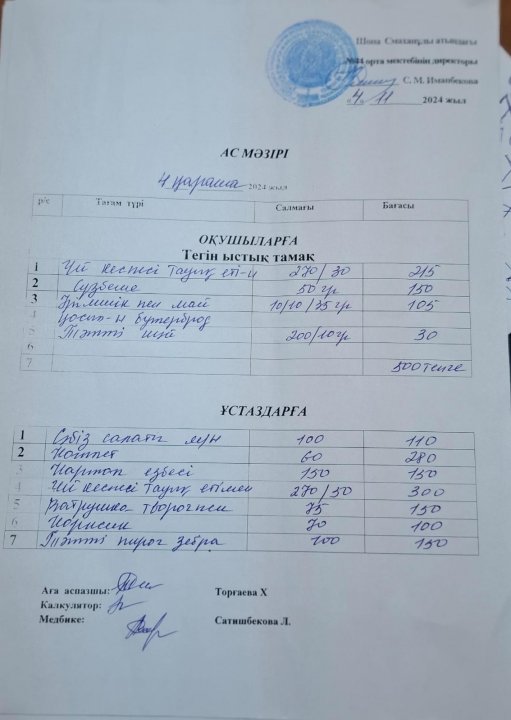 Шона Смаханұлы атындағы
№44 орта мектебінің директоры
С. М. Иманбекова
«4» 11 2024 жыл
АС МӘЗІРІ
4 қараша 2024 жыл
р/с Тағам түрі Салмағы Бағасы
ОҚУШЫЛАРҒА
Тегін ыстық тамақ
1 Үй кеспесі тауық еті-н 270/30 215
2 Сүзбеше 50 гр 150
3 Ірімшік пен май 10/10/35 гр 105
4 қосыл-н бутерброд
5 Тәтті шай 200/10гр 30
6
7 500 теңге
ҰСТАЗДАРҒА
1 Сәбіз салаты 100 110
2 Котлет 60 280
3 Картоп езбесі 150 150
4 Үй кеспесі тауық етімен 270/50 300
5 Ватрушка творогпен 75 150
6 70 100
7 Тәтті пирог зебра 100 150
Аға аспазшы: Торғаева Х
Калкулятор:
Медбике: Сатишбекова Л.